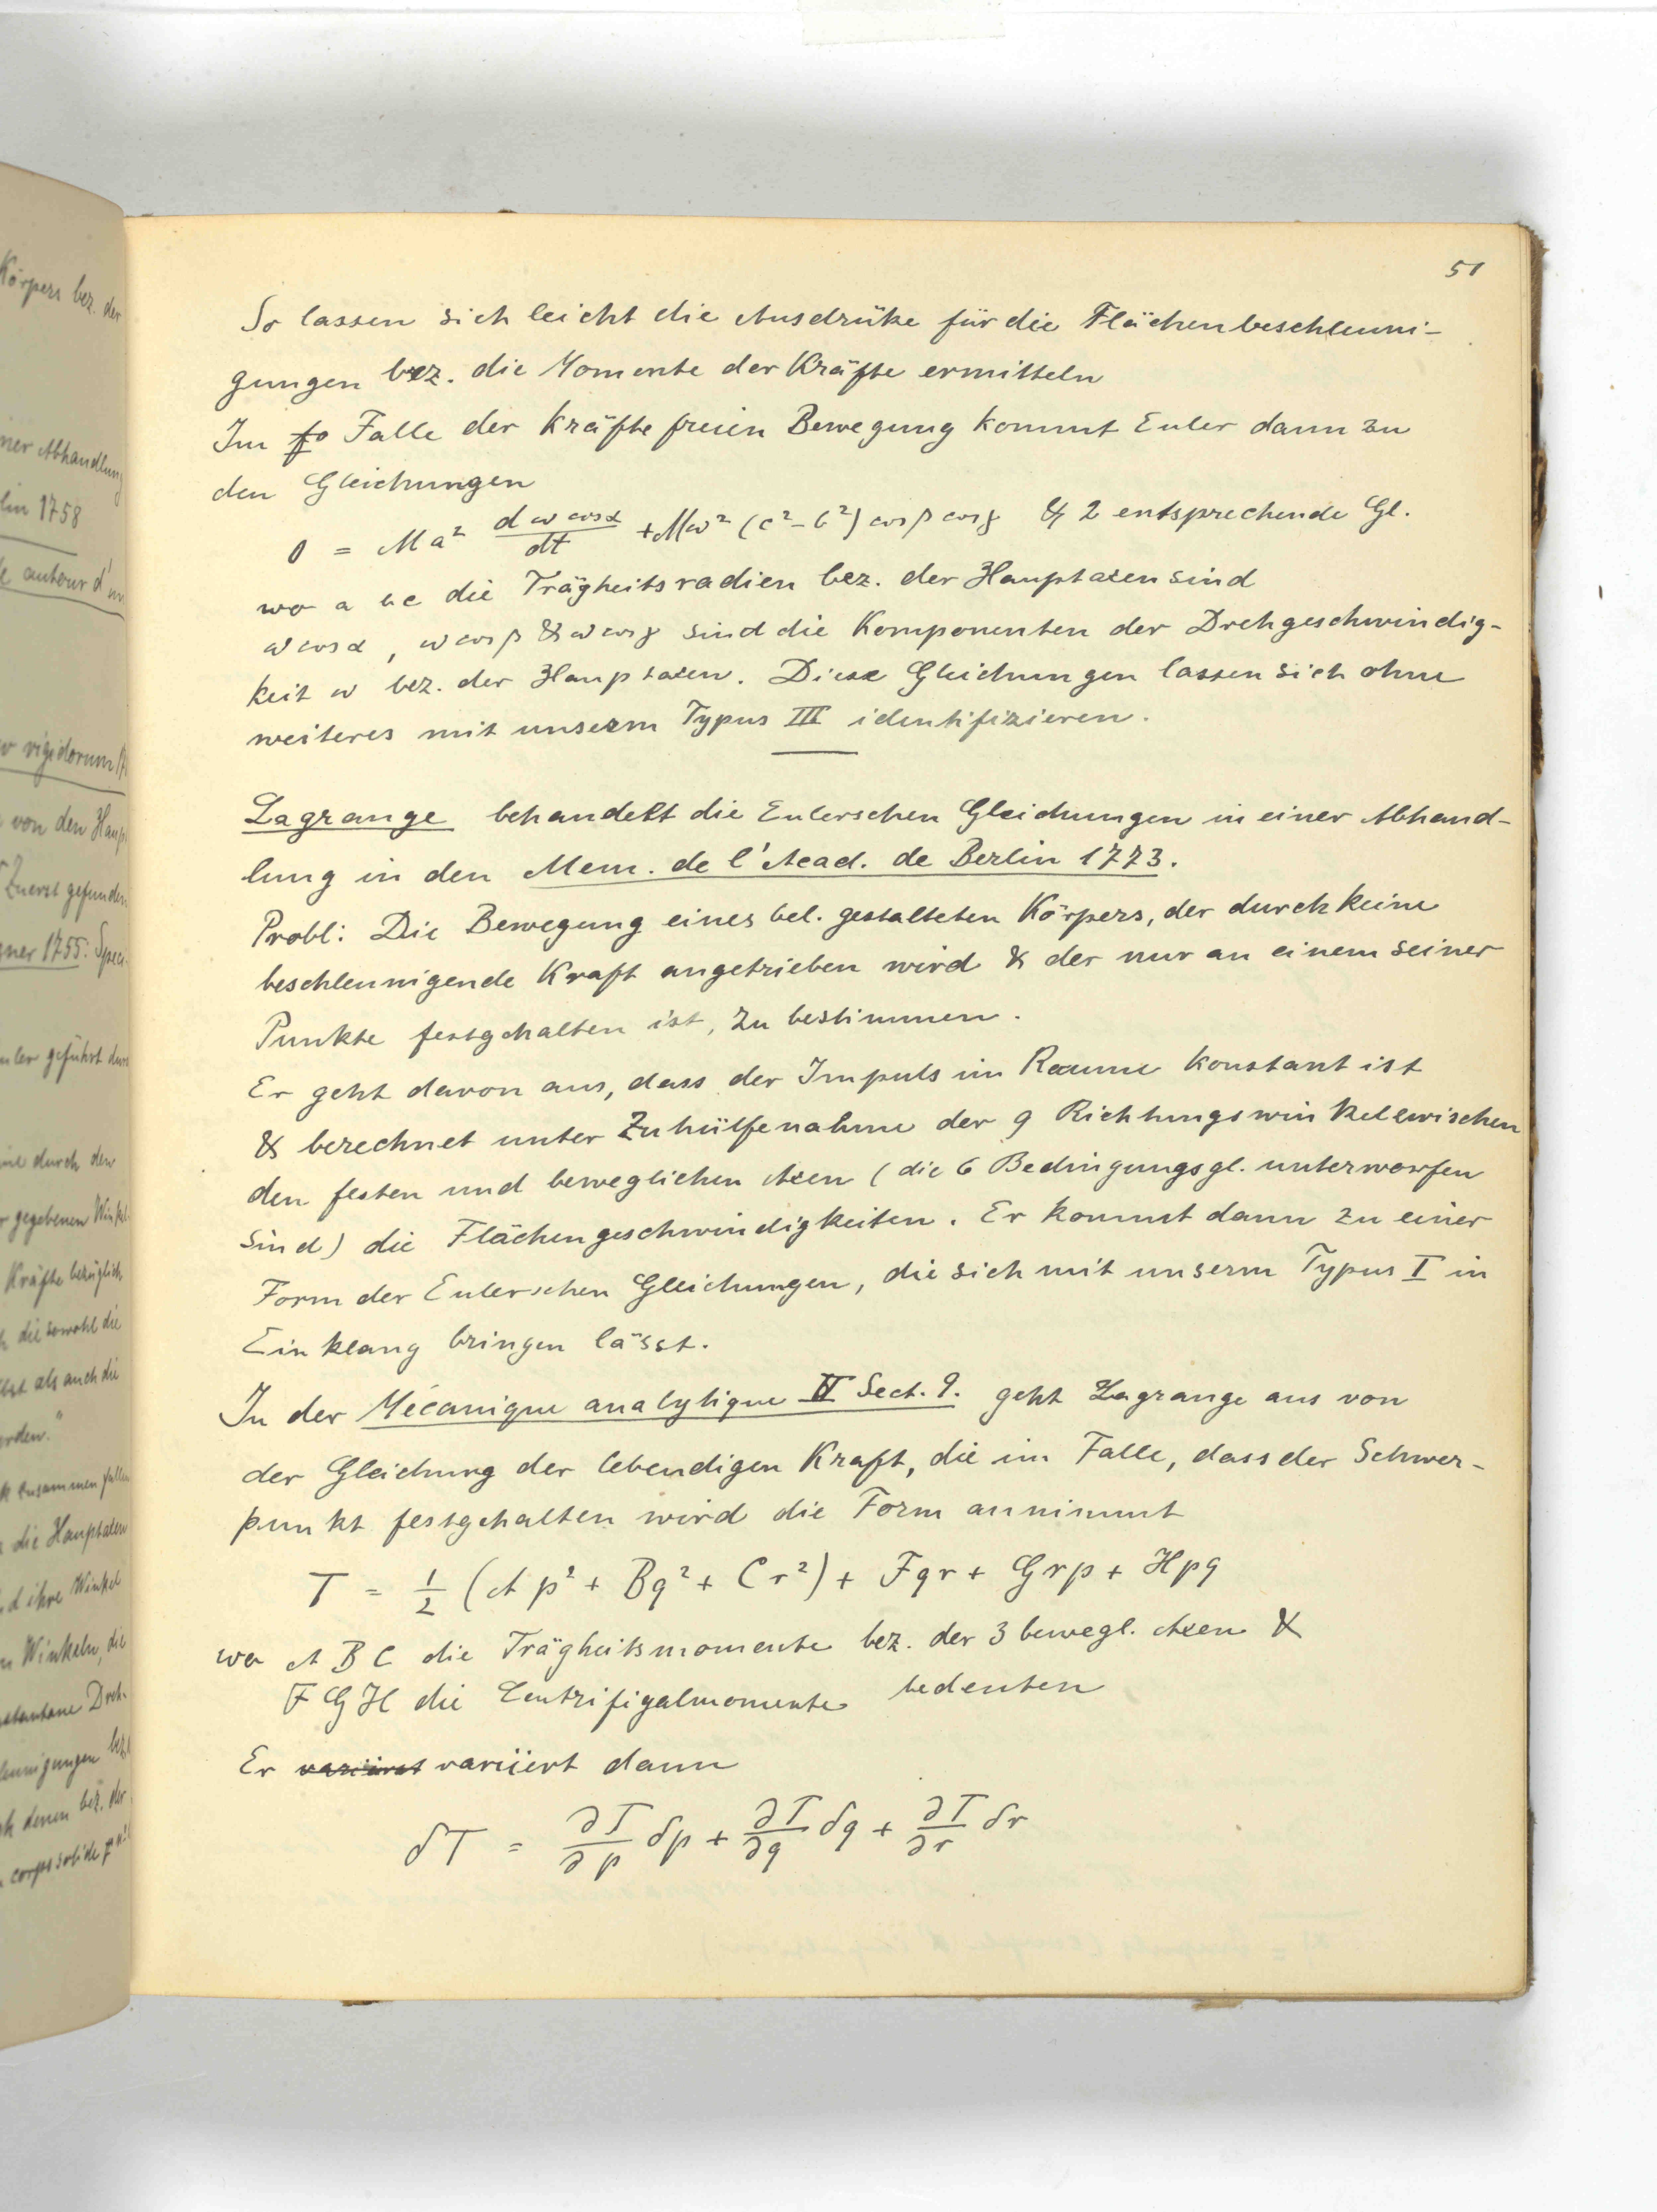 51
So lassen sich leicht die Ausdrüke für die Flächenbeschleuni-
gungen bez. die Momente der Kräfte ermitteln
Im fo Falle der Kräfte freien Bewegung kommt Euler dann zu
den Gleichungen
0 = Ma² d ω cosα / dt + Mω² (c² - b²) cosβ cosγ & 2 entsprechende Gl.
wo a b c die Trägheitsradien bez. der Hauptaxen sind
ω cosα, ω cosβ & ω cosγ sind die Komponenten der Drehgeschwindig-
keit ω bez. der Hauptaxen. Diese Gleichungen lassen sich ohne
weiteres mit unserm Typus III identifizieren.
Lagrange behandelt die Eulerschen Gleichungen in einer Abhand-
lung in den Mem. de l'Acad. de Berlin 1773.
Probl: Die Bewegung eines bel. gestalteten Körpers, der durch keine
beschleunigende Kraft angetrieben wird & der nur an einem seiner
Punkte festgehalten ist, zu bestimmen.
Er geht davon aus, dass der Impuls im Raume konstant ist
& berechnet unter Zuhülfenahme der 9 Richtungswinkel zwischen
den festen und beweglichen Axen (die 6 Bedingungsgl. unterworfen
sind) die Flächengeschwindigkeiten. Er kommt dann zu einer
Form der Eulerschen Gleichungen, die sich mit unserm Typus I in
Einklang bringen lässt.
In der Mécanique analytique II Sect. 9. geht Lagrange aus von
der Gleichung der lebendigen Kraft, die im Falle, dass der Schwer-
punkt festgehalten wird die Form annimmt
T = 1/2 (Ap² + Bq² + Cr²) + Fqr + Grp + Hpq
wo A B C die Trägheitsmomente bez. der 3 bewegl. Axen &
F G H die Centrifigalmomente bedeuten
Er variiert variiert dann
δT = ∂T/∂p δp + ∂T/∂q δq + ∂T/∂r δr